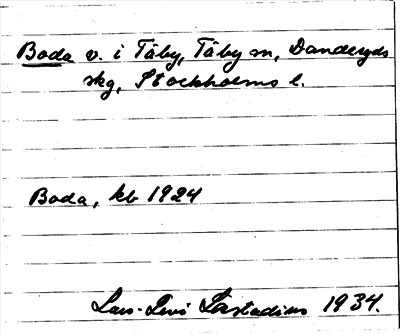 Boda v. i Täby, Täby sn, Danderyds
skg, Stockholms l.
Boda, kb 1924
Lars-Levi Læstadius 1934.